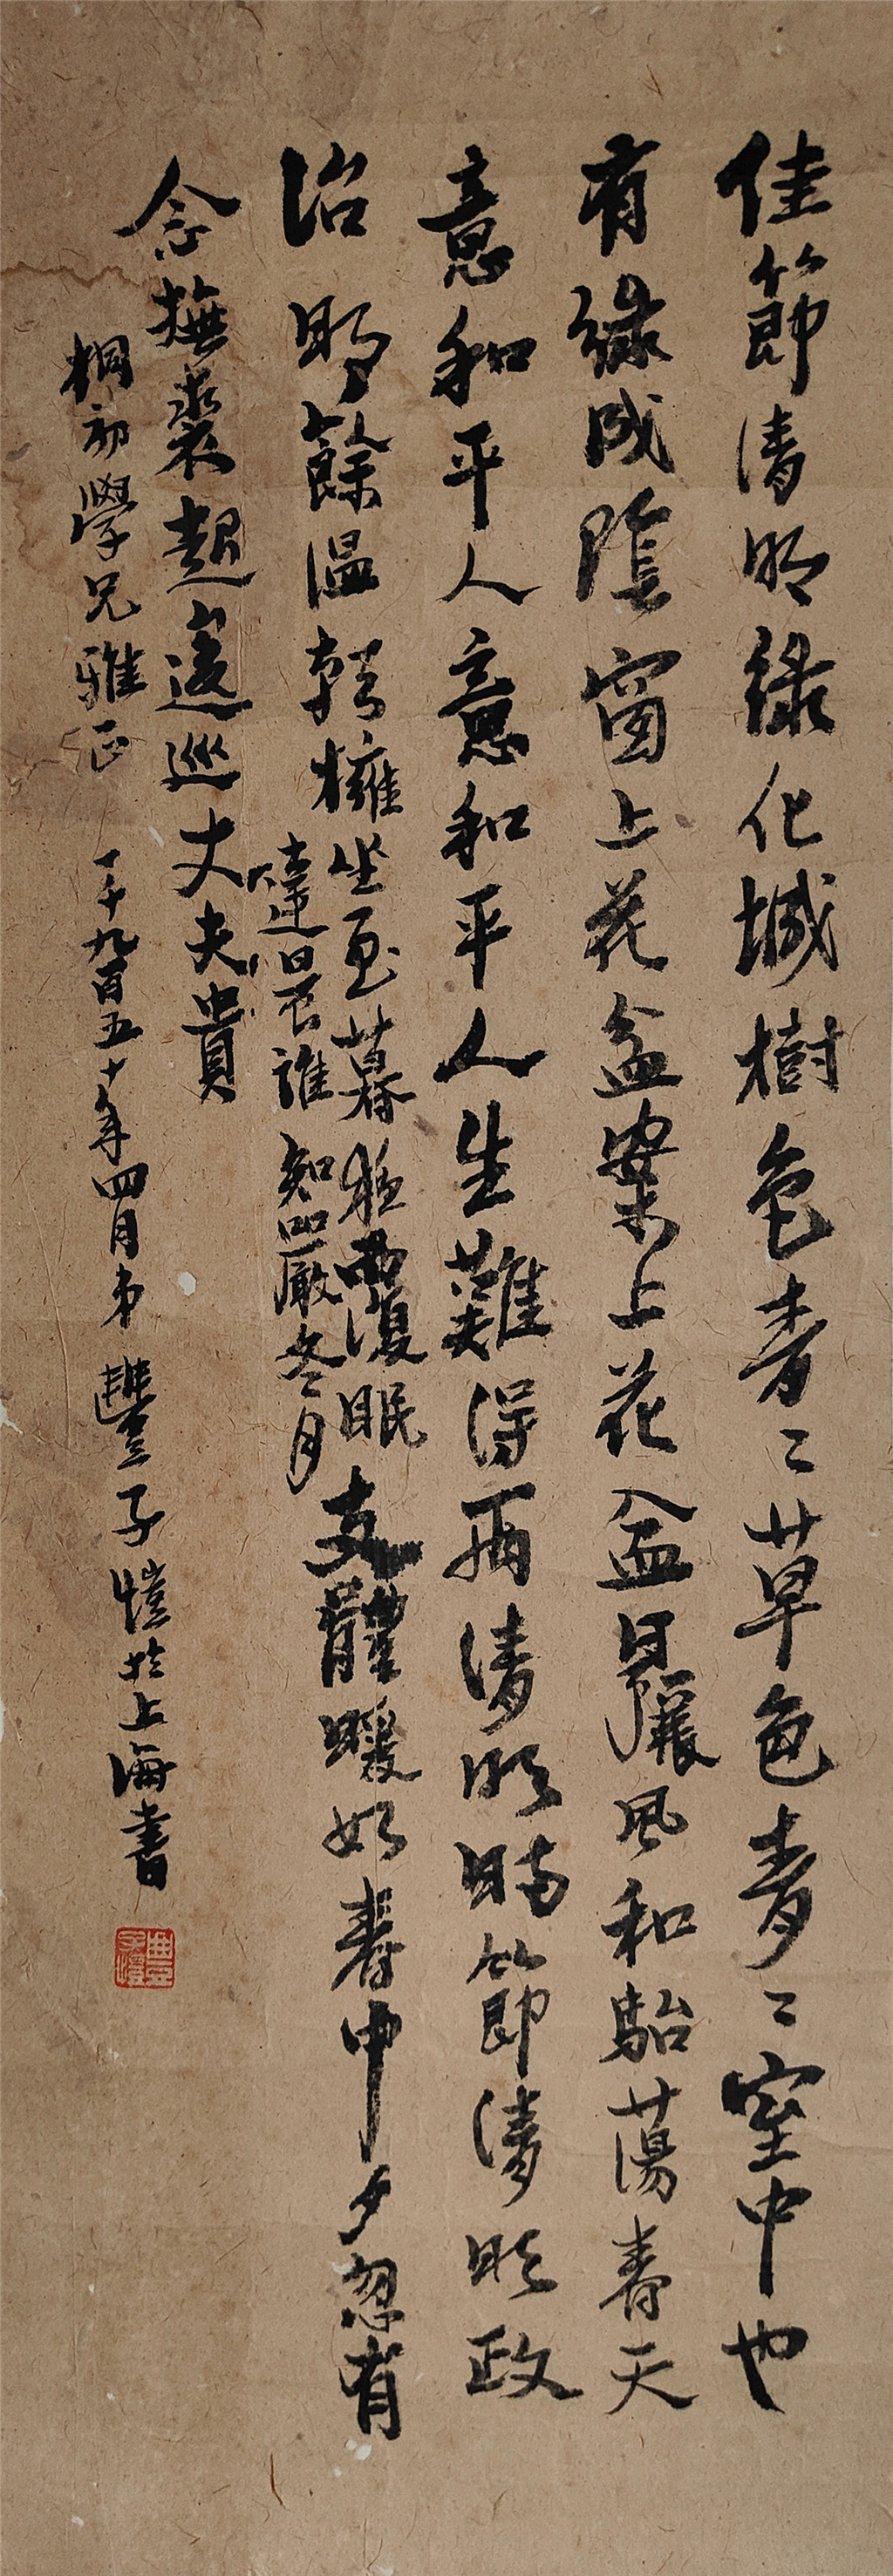 佳節清明綠化城樹色青〻草色青〻室中也
有綠成陰窗上花盆案上花盆日麗風和駘蕩春天
意和平人意和平人生難得兩清明時節清明政
治明餘溫軽擁坐至暮夜兩復眠支體暖如春中夕忽有
達晨誰知嚴冬月
念撫裘起逡巡丈夫貴
桐初學兄雅正 一千九百五十年四月弟豐子愷於上海書
豐子愷